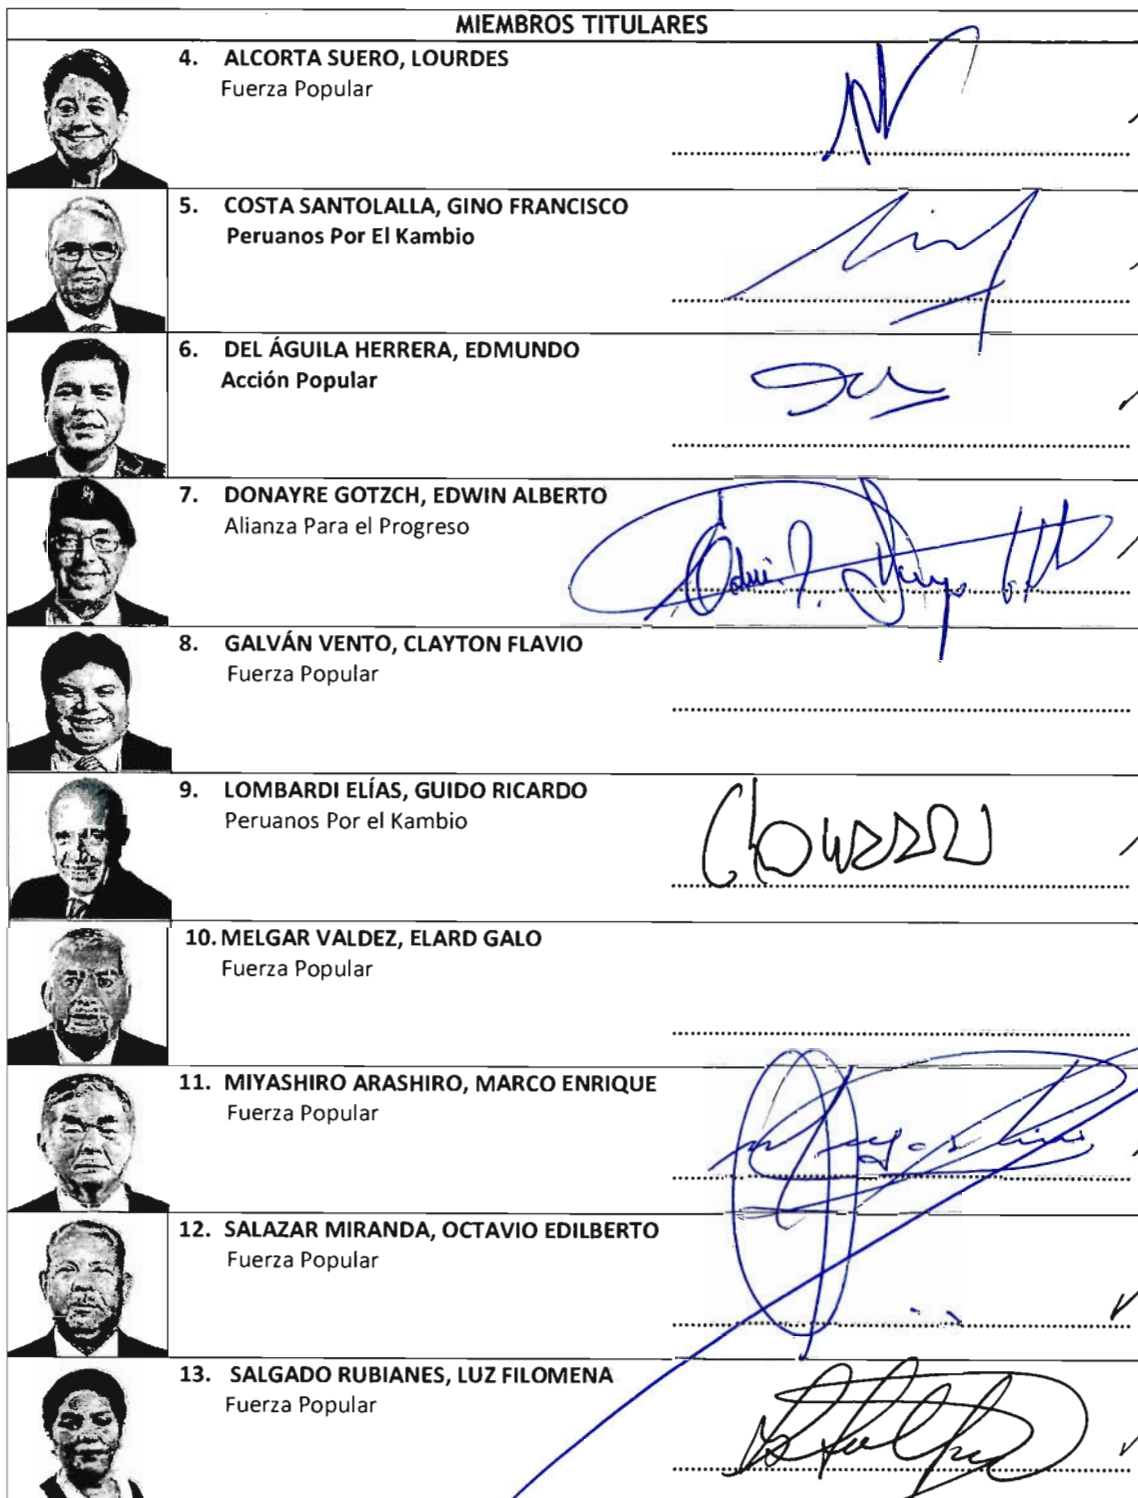 MIEMBROS TITULARES
4. ALCORTA SUERO, LOURDES
Fuerza Popular
5. COSTA SANTOLALLA, GINO FRANCISCO
Peruanos Por El Kambio
6. DEL ÁGUILA HERRERA, EDMUNDO
Acción Popular
7. DONAYRE GOTZCH, EDWIN ALBERTO
Alianza Para el Progreso
8. GALVÁN VENTO, CLAYTON FLAVIO
Fuerza Popular
9. LOMBARDI ELÍAS, GUIDO RICARDO
Peruanos Por el Kambio
10. MELGAR VALDEZ, ELARD GALO
Fuerza Popular
11. MIYASHIRO ARASHIRO, MARCO ENRIQUE
Fuerza Popular
12. SALAZAR MIRANDA, OCTAVIO EDILBERTO
Fuerza Popular
13. SALGADO RUBIANES, LUZ FILOMENA
Fuerza Popular